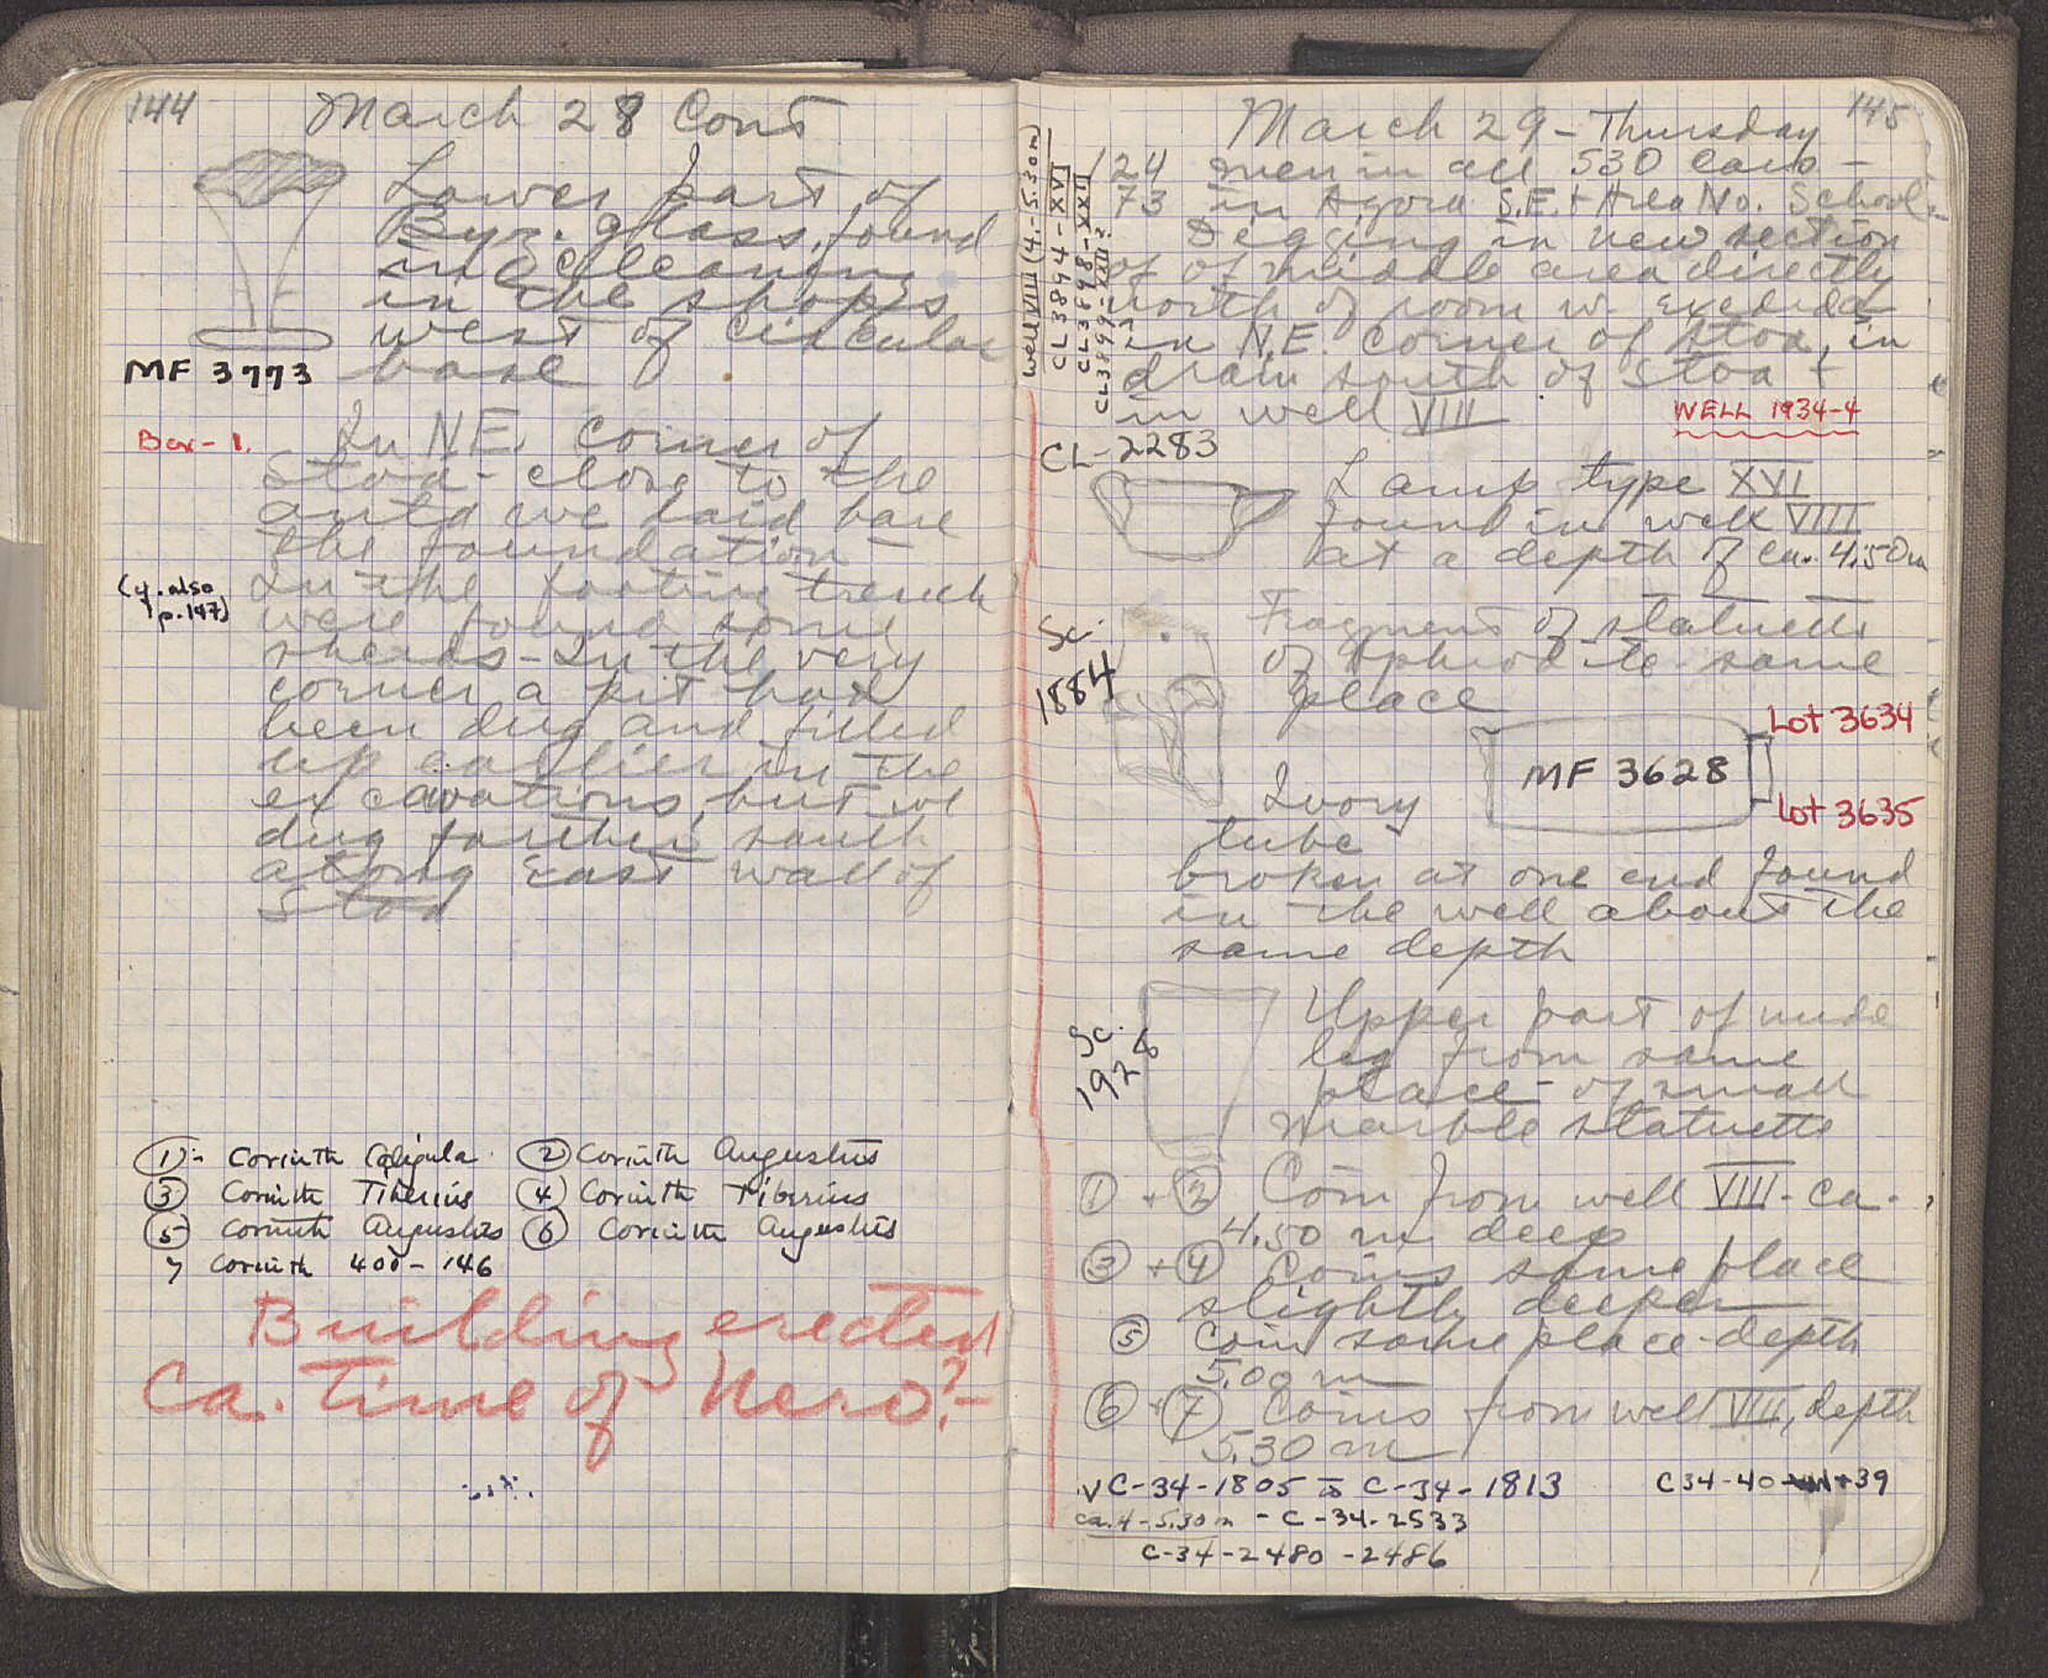 144
March 28 Cont
Lower part of
Byz. glass, found
in cleaning
in the shops
west of circular
base
MF 3773
Box-1.
In N.E. corner of
Stoa - close to the
anta we laid bare
the foundation -
In the footing trench
(cf. also
p.147)
were found some
sherds - In the very
corner a pit had
been dug and filled
up earlier in the
excavations, but we
dug farther south
along East wall of
Stoa
① - Corinth Caligula ② Corinth Augustus
③ Corinth Tiberius ④ Corinth Tiberius
⑤ Corinth Augustus ⑥ Corinth Augustus
7 Corinth 400-146
Building erected
ca. time of Nero? -
145
March 29 - Thursday
124 men in all 530 cars -
73 in Agora S.E. + Area No. School -
Digging in new section
of of middle area directly
north of room w. exedra
in N.E. corner of Stoa, in
drain south of Stoa +
in well VIII
WELL 1934-4
Well VIII (4.-5.30m)
CL 3894-XVI
CL 3898-XXII
CL 3899-XXII?
CL-2283
Lamp type XVI
found in well VIII
at a depth of ca. 4.50m
Sc.
1884
Fragment of statuette
of Aphrodite same
place
Lot 3634
MF 3628
Lot 3635
Ivory
tube
broken at one end found
in the well about the
same depth
Sc.
1928
Upper part of nude
leg from same
place - of small
marble statuette
① + ② Coin from well VIII - ca.
4.50 m deep
③ + ④ Coins same place
slightly deeper
⑤ Coin same place - depth
5.00 m
⑥ + ⑦ Coins from well VIII, depth
5.30 m
√ C-34-1805 to C-34-1813 C34-40 + 39
ca. 4-5.30m - C-34-2533
C-34-2480-2486